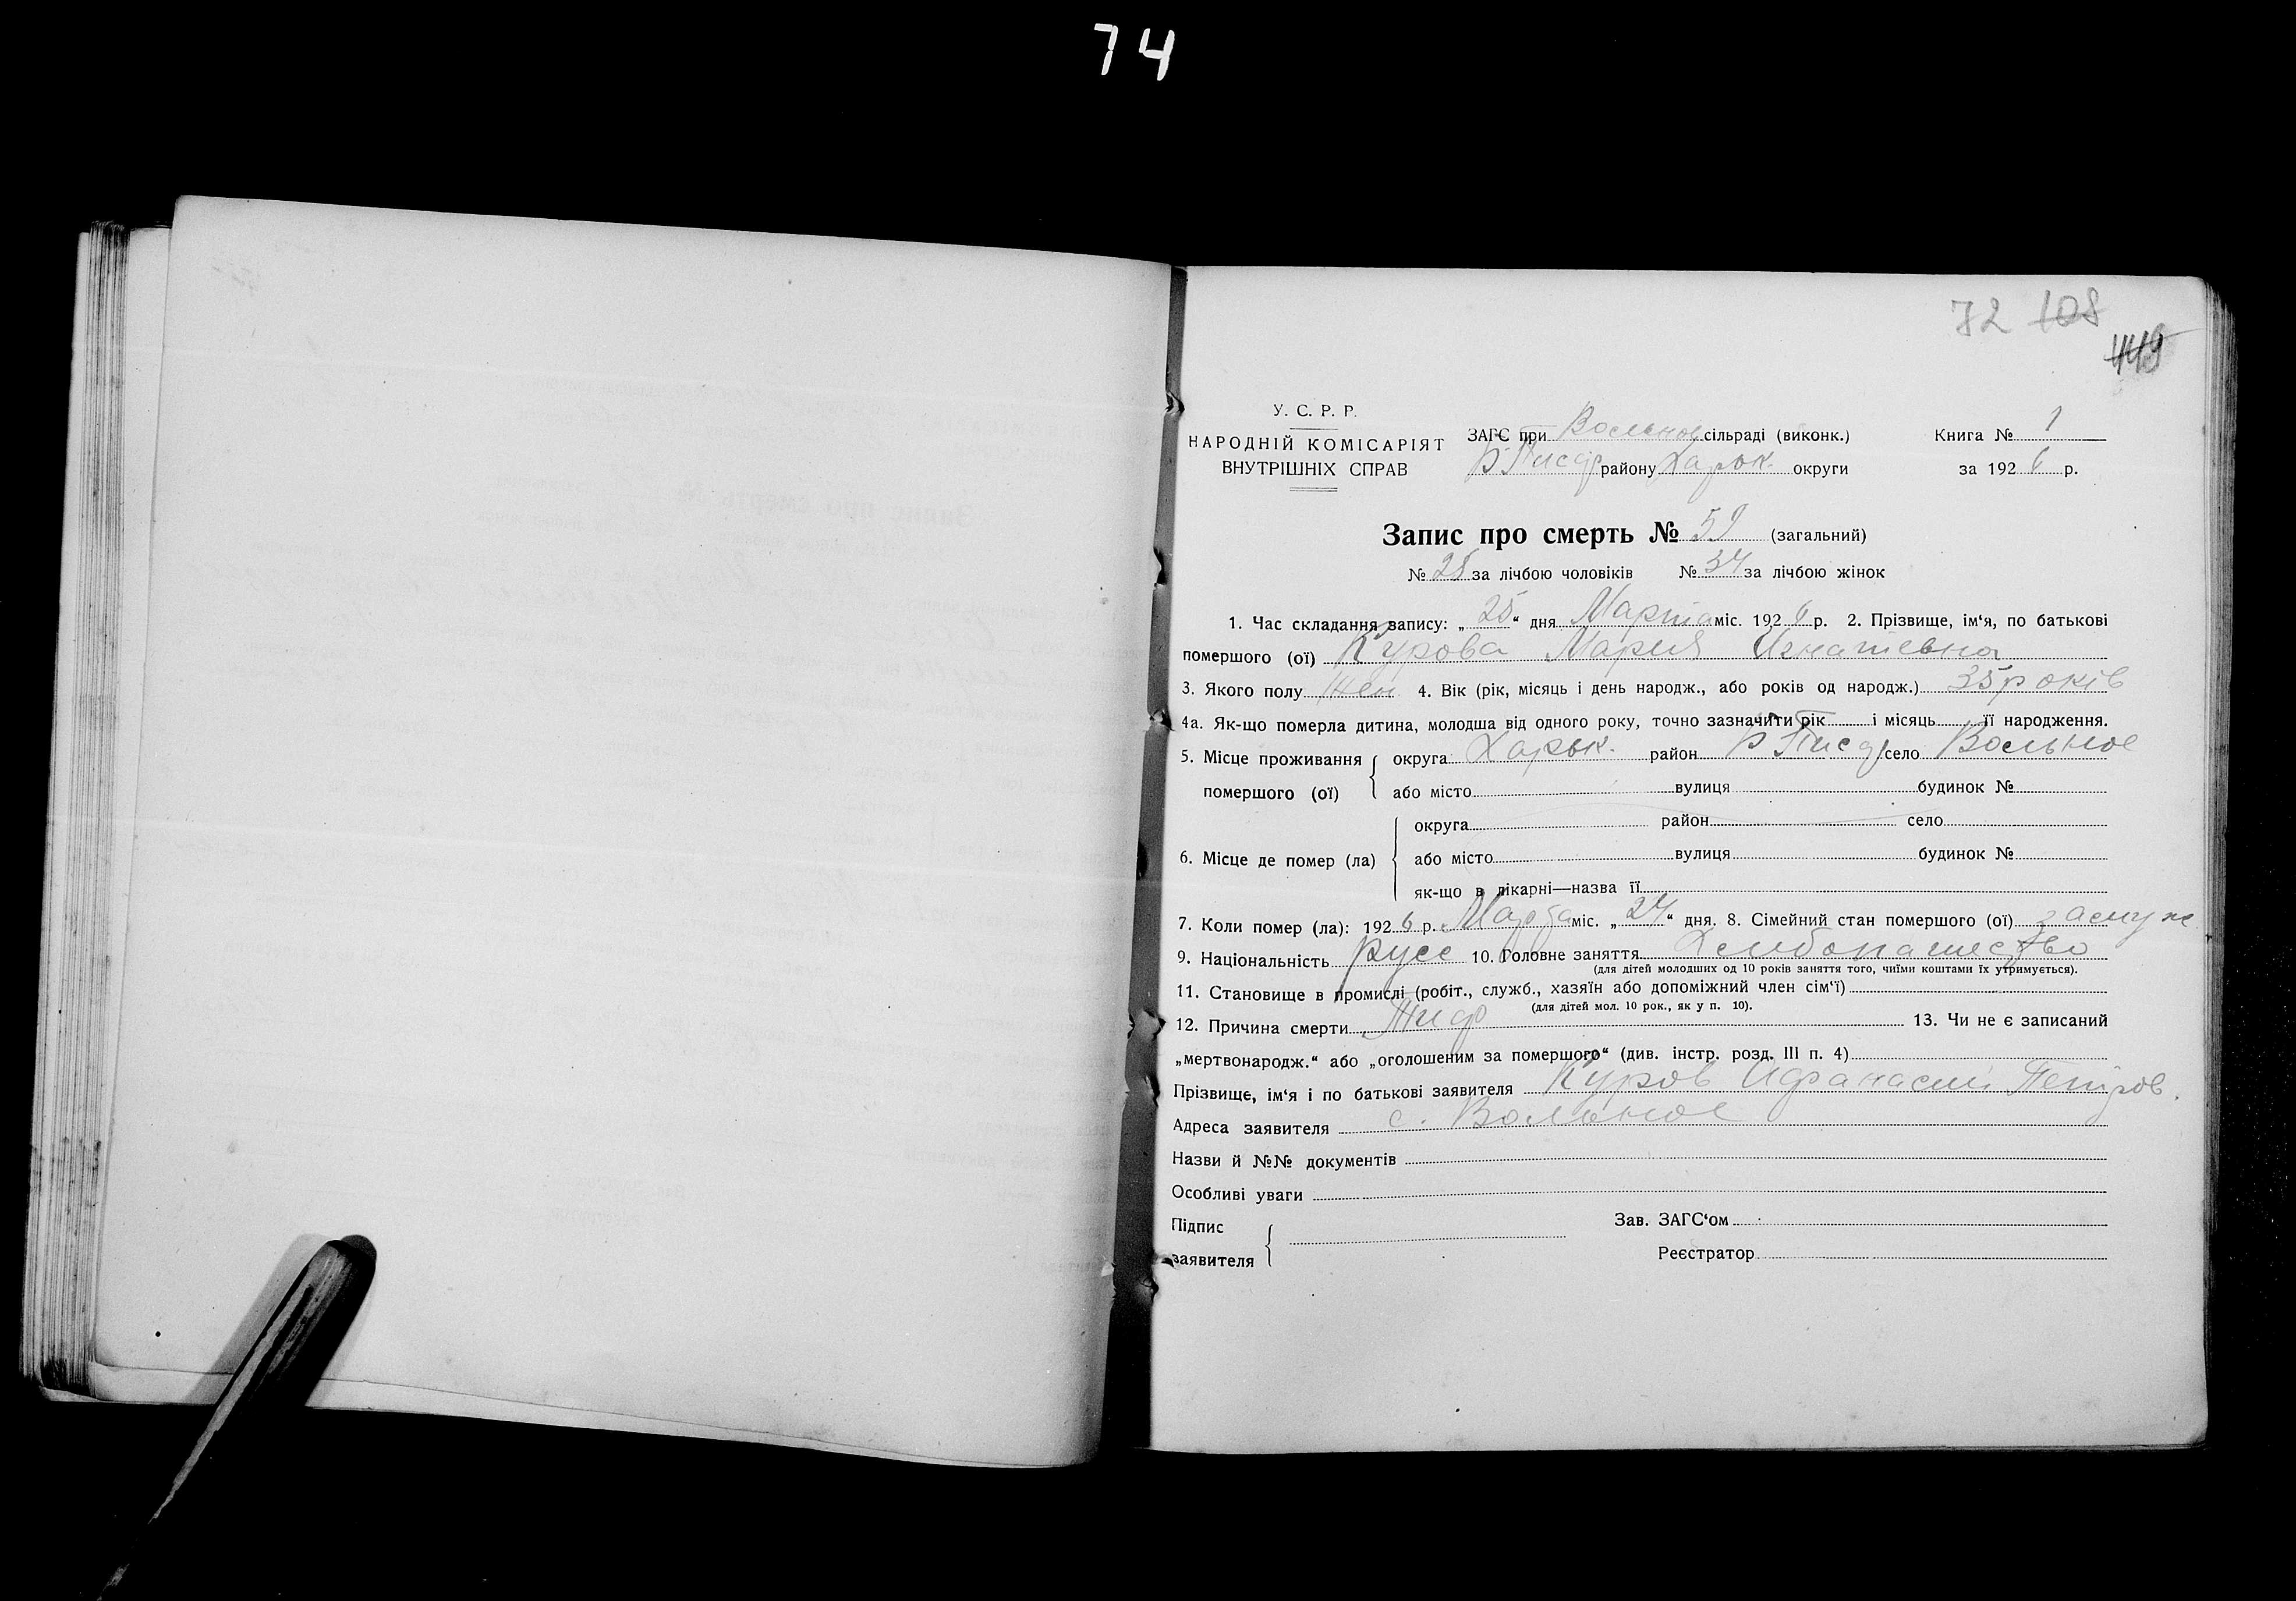 74
72 108
449
У. С. Р. Р.
НАРОДНІЙ КОМІСАРІЯТ
ВНУТРІШНІХ СПРАВ
ЗАГС при Вольнов сільраді (виконк.) Книга № 1
Б Писар району Харьк. округи за 1926 р.
Запис про смерть № 59 (загальний)
№ 25 за лічбою чоловіків № 34 за лічбою жінок
1. Час складання запису: „25“ дня Марта міс. 1926 р. 2. Прізвище, ім‘я, по батькові
помершого (ої) Курова Мария Игнатевна
3. Якого полу жен 4. Вік (рік, місяць і день народж., або років од народж.) 35 років
4а. Як-що померла дитина, молодша від одного року, точно зазначити рік і місяць її народження.
5. Місце проживання помершого (ої) округа Харьк. район Б Писар село Вольное
або місто вулиця будинок №
6. Місце де помер (ла) округа район село
або місто вулиця будинок №
як-що в лікарні—назва її
7. Коли помер (ла): 1926 р. Марта міс. „24“ дня. 8. Сімейний стан помершого (ої) замуж
9. Національність русс 10. Головне заняття Хлибопашество
(для дітей молодших од 10 років заняття того, чиїми коштами їх утримується).
11. Становище в промислі (робіт., служб., хазяїн або допоміжний член сім‘ї)
(для дітей мол. 10 рок., як у п. 10).
12. Причина смерти Тиф 13. Чи не є записаний
„мертвонародж.“ або „оголошеним за помершого“ (див. інстр. розд. III п. 4)
Прізвище, ім‘я і по батькові заявителя Куров Афанасий Петров.
Адреса заявителя с. Вольное
Назви й №№ документів
Особливі уваги
Підпис заявителя
Зав. ЗАГС‘ом
Реєстратор